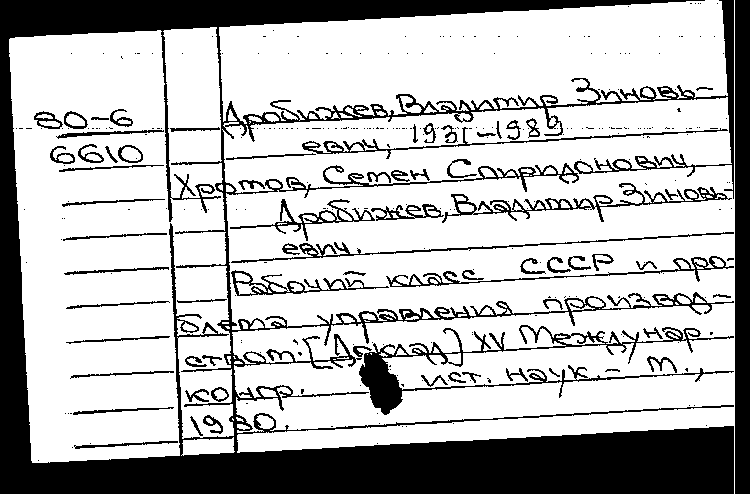 80-6
6610
Дробижев, Владимир Зиновь-
евич, 1931-1989
Хромов, Семен Спиридонович,
Дробижев, Владимир Зиновь-
евич.
Рабочий класс СССР и про-
блема управления производ-
ством: [Доклад] XV Междунар.
конгр. ист. наук. - М.,
1980.